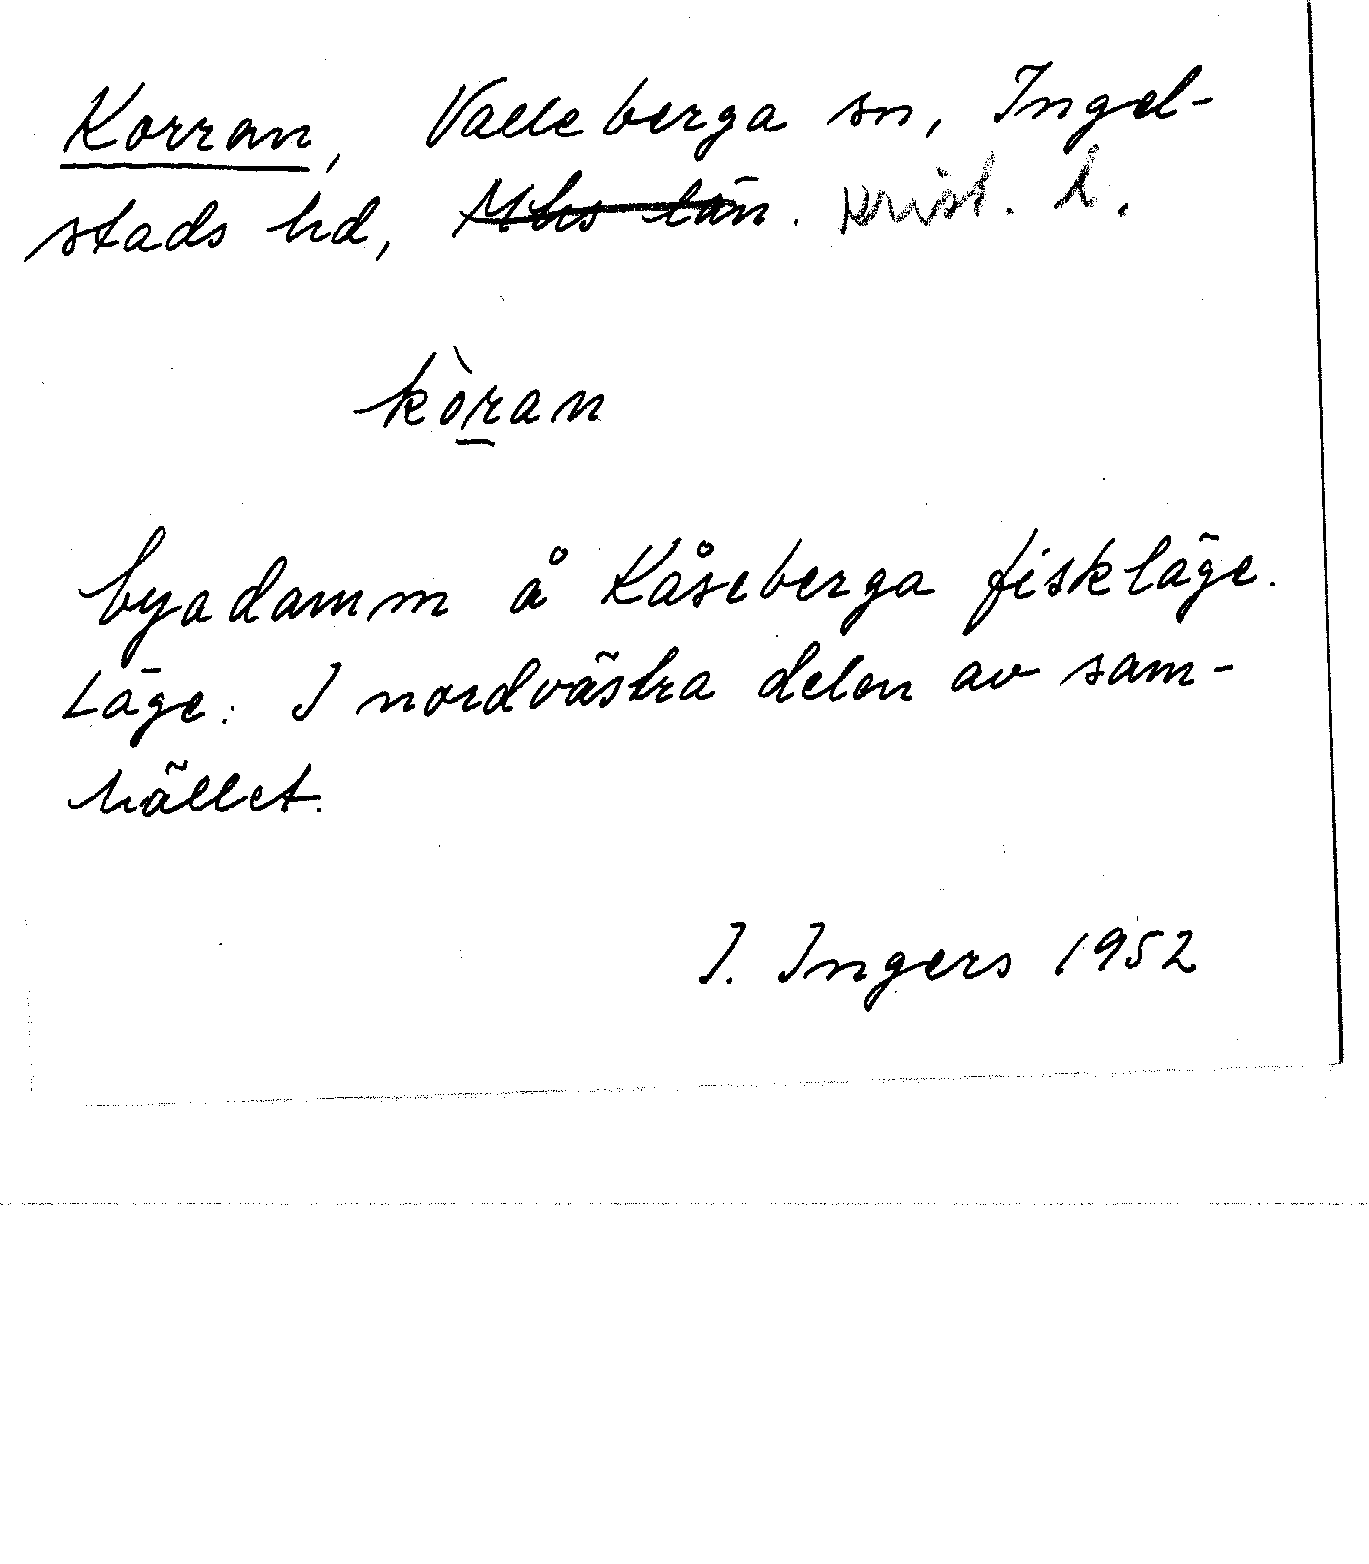 Korran, Valleberga sn, Ingel-
stads hd, Mhs län. Krist. l.
kòran
byadamm å Kåseberga fiskläge.
Läge: I nordvästra delen av sam-
hället.
I. Ingers 1952